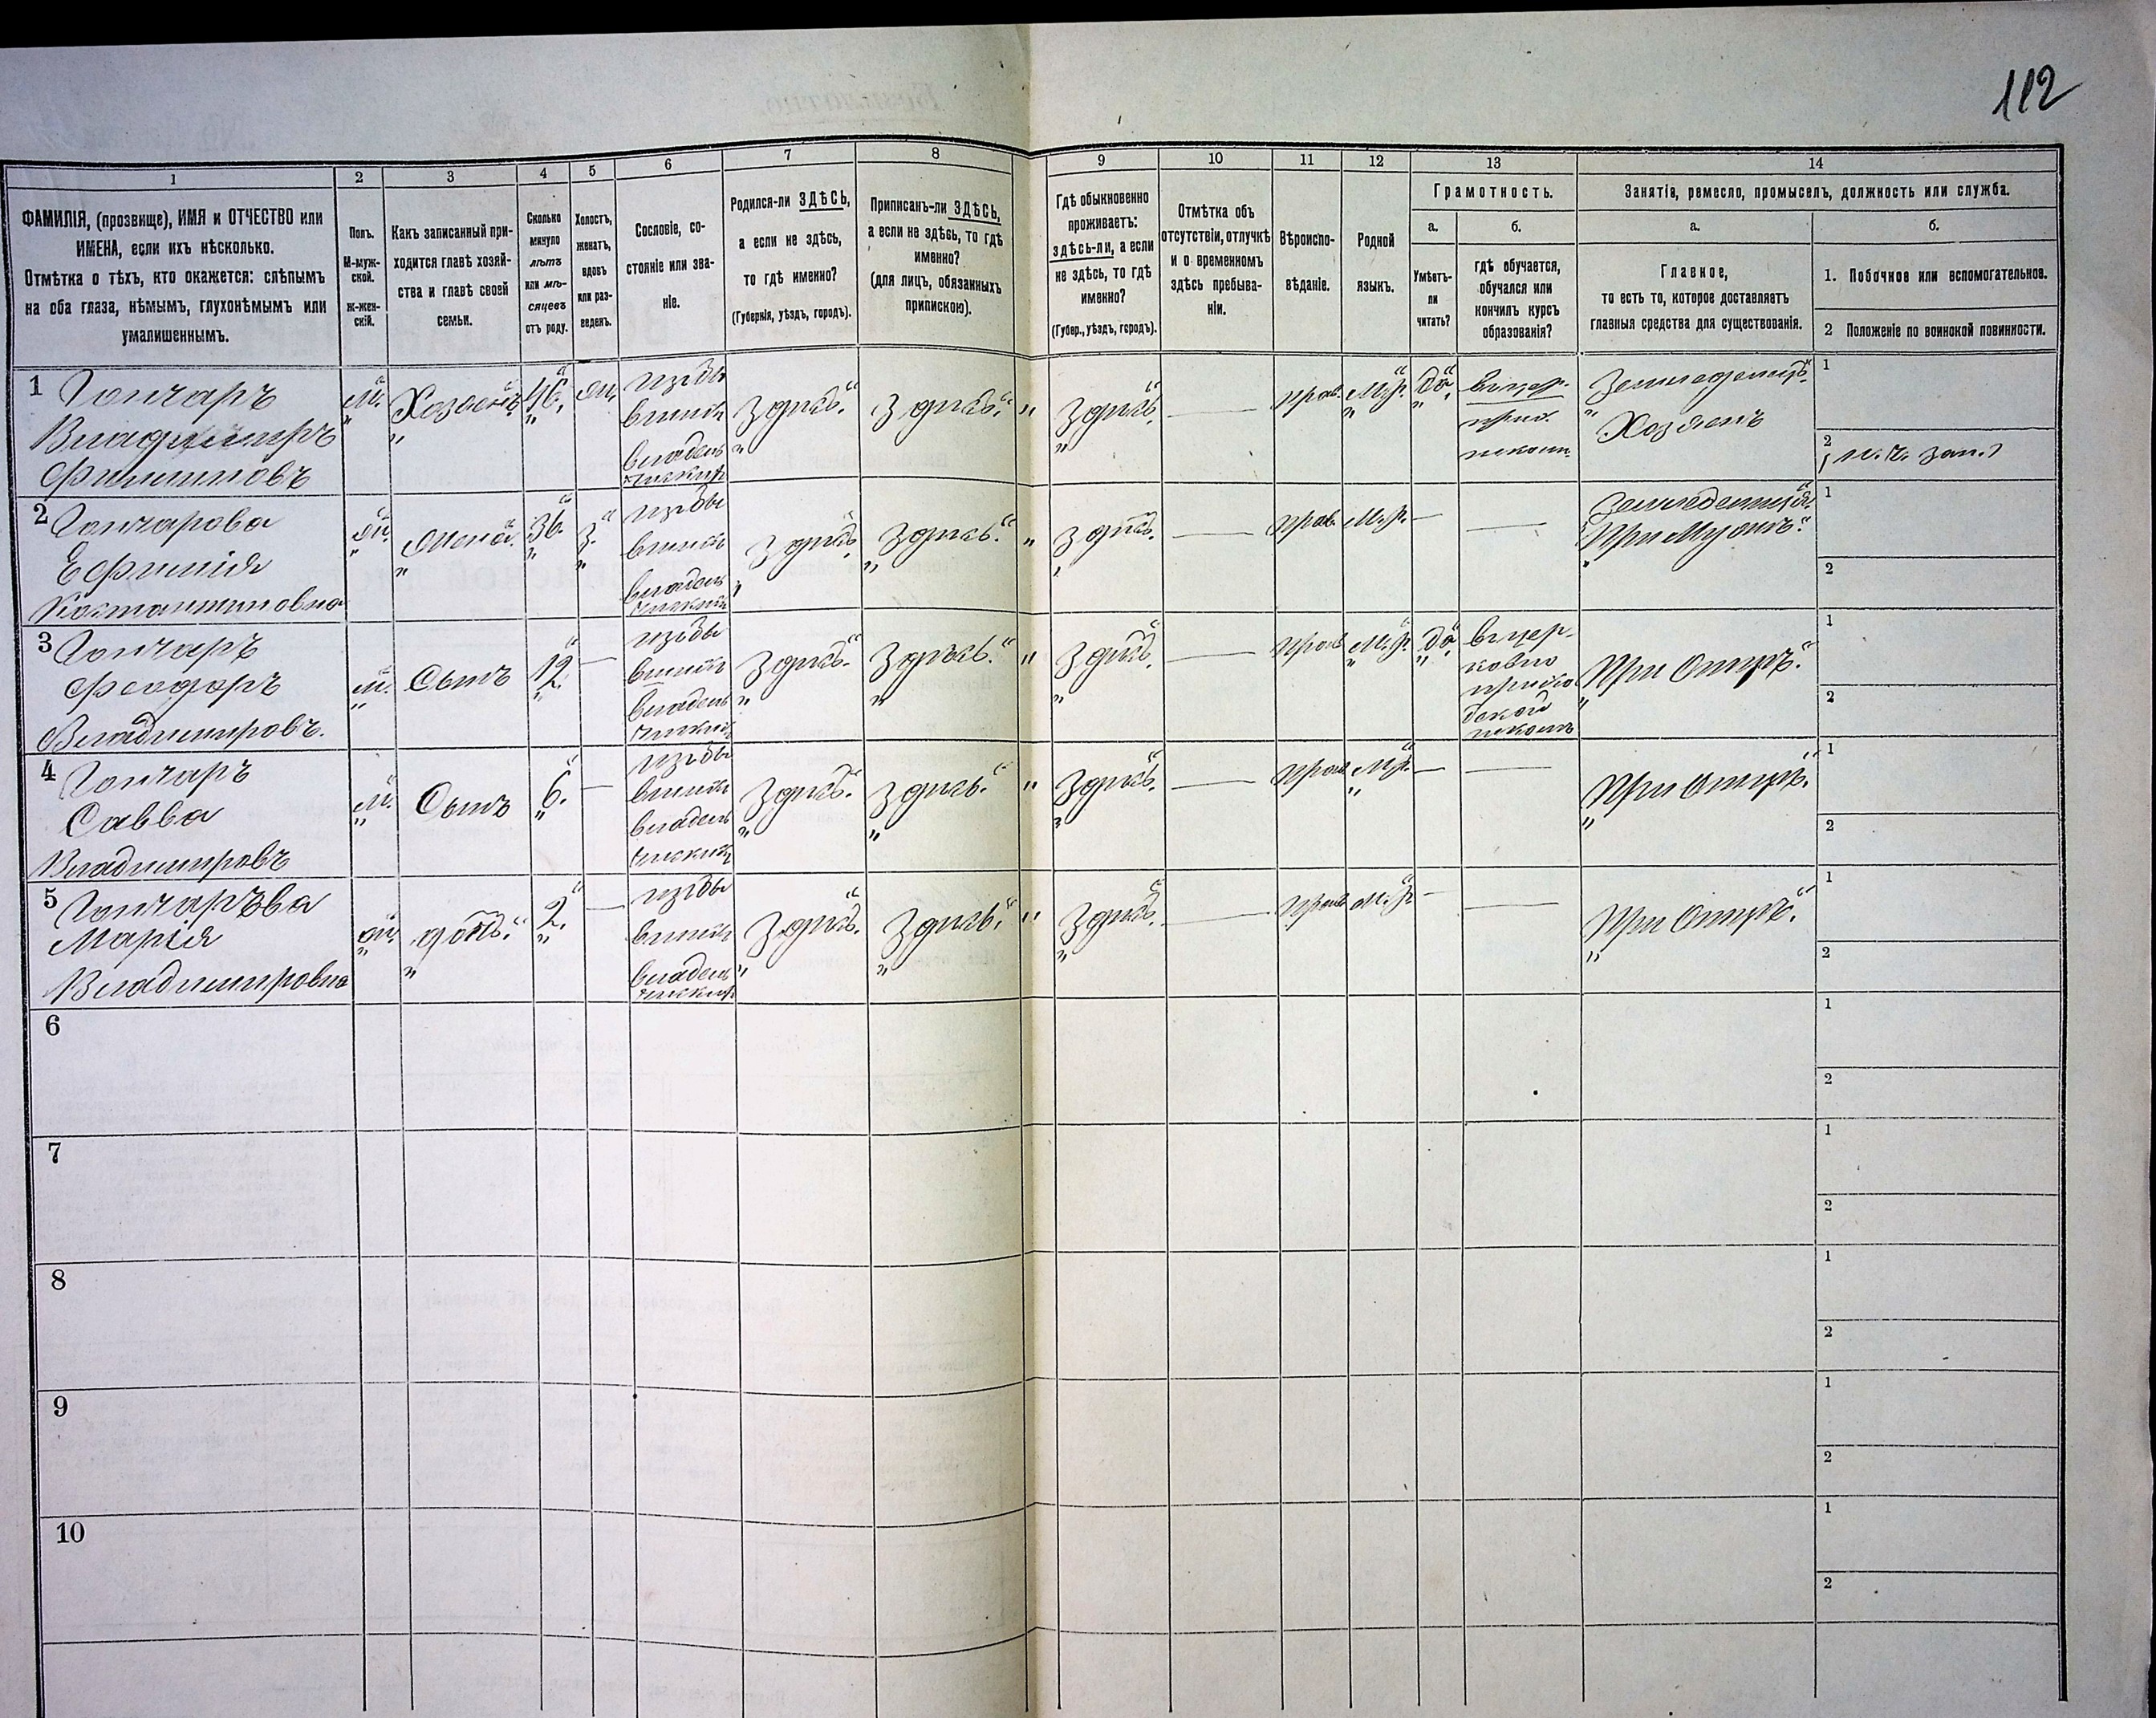 112
1 2 3 4 5 6 7 8 9 10 11 12 13 14
ФАМИЛІЯ, (прозвище), ИМЯ и ОТЧЕСТВО или
ИМЕНА, если ихъ нѣсколько.
Отмѣтка о тѣхъ, кто окажется: слѣпымъ
на оба глаза, нѣмымъ, глухонѣмымъ или
умалишеннымъ.
Полъ.
М-муж-
ской.
Ж-жен-
скій.
Какъ записанный при-
ходится главѣ хозяй-
ства и главѣ своей
семьи.
Сколько
минуло
лѣтъ
или мѣ-
сяцевъ
отъ роду.
Холостъ,
женатъ,
вдовъ
или раз-
веденъ.
Сословіе, со-
стояніе или зва-
ніе.
Родился-ли ЗДѢСЬ,
а если не здѣсь,
то гдѣ именно?
(Губернія, уѣздъ, городъ).
Приписанъ-ли ЗДѢСЬ,
а если не здѣсь, то гдѣ
именно?
(для лицъ, обязанныхъ
припискою).
Гдѣ обыкновенно
проживаетъ:
здѣсь-ли, а если
не здѣсь, то гдѣ
именно?
(Губер., уѣздъ, городъ).
Отмѣтка объ
отсутствіи, отлучкѣ
и о временномъ
здѣсь пребыва-
ніи.
Вѣроиспо-
вѣданіе.
Родной
языкъ.
Грамотность.
а.
Умѣетъ-
ли
читать?
б.
гдѣ обучается,
обучался или
кончилъ курсъ
образованія?
Занятіе, ремесло, промыселъ, должность или служба.
а.
Главное,
то есть то, которое доставляетъ
главныя средства для существованія.
б.
1. Побочное или вспомогательное.
2 Положеніе по воинской повинности.
1 Гончаръ
Владимиръ
Филиповъ
м.
Хозяинъ
46.
ж.
изъ бы
вшихъ
владель
ческихъ
Здѣсь.
Здѣсь.
Здѣсь.
прав.
М.р.
да
въ цер.
прих.
Земледѣлецъ
Хозяинъ
1
2
2 Гончарова
Ефимія
Костантиновна
ж.
Жена.
36.
з.
изъ бы
вшихъ
владель
ческихъ
Здѣсь.
Здѣсь.
Здѣсь.
прав.
М.р.
Земледѣлица
При Мужѣ.
1
2
3 Гончаръ
Феодоръ
Владимировъ.
м.
Сынъ
12.
изъ бы
вшихъ
владель
ческихъ
Здѣсь.
Здѣсь.
Здѣсь.
прав
М.р.
да
въ цер-
ковно
прихо
дской
При Отцѣ.
1
2
4 Гончаръ
Савва
Владимировъ
м.
Сынъ
6.
изъ бы
вшихъ
владель
ческихъ
Здѣсь.
Здѣсь.
Здѣсь.
прав
М.р.
При Отцѣ.
1
2
5 Гончарова
Марія
Владимировна
ж.
дочь.
2.
изъ бы
вшихъ
владель
ческихъ
Здѣсь.
Здѣсь.
Здѣсь.
прав
М.р
При Отцѣ.
1
2
6
1
2
7
1
2
8
1
2
9
1
2
10
1
2